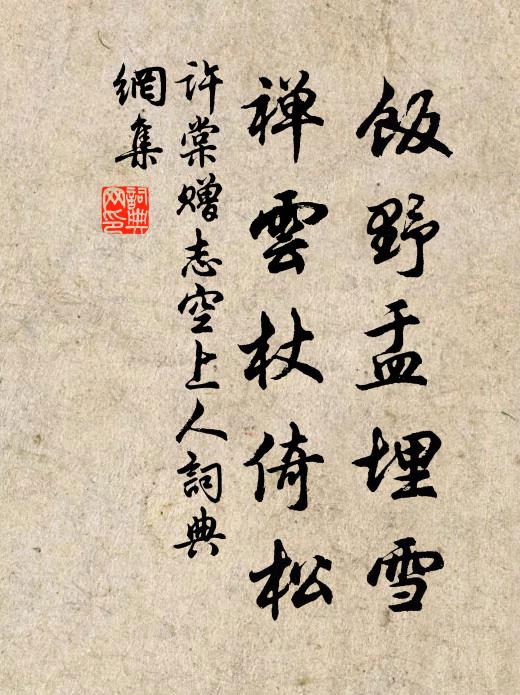 飯野盂埋雪
禅雲杖倚松
許棠贈志空上人詞典
網集
詞典网印